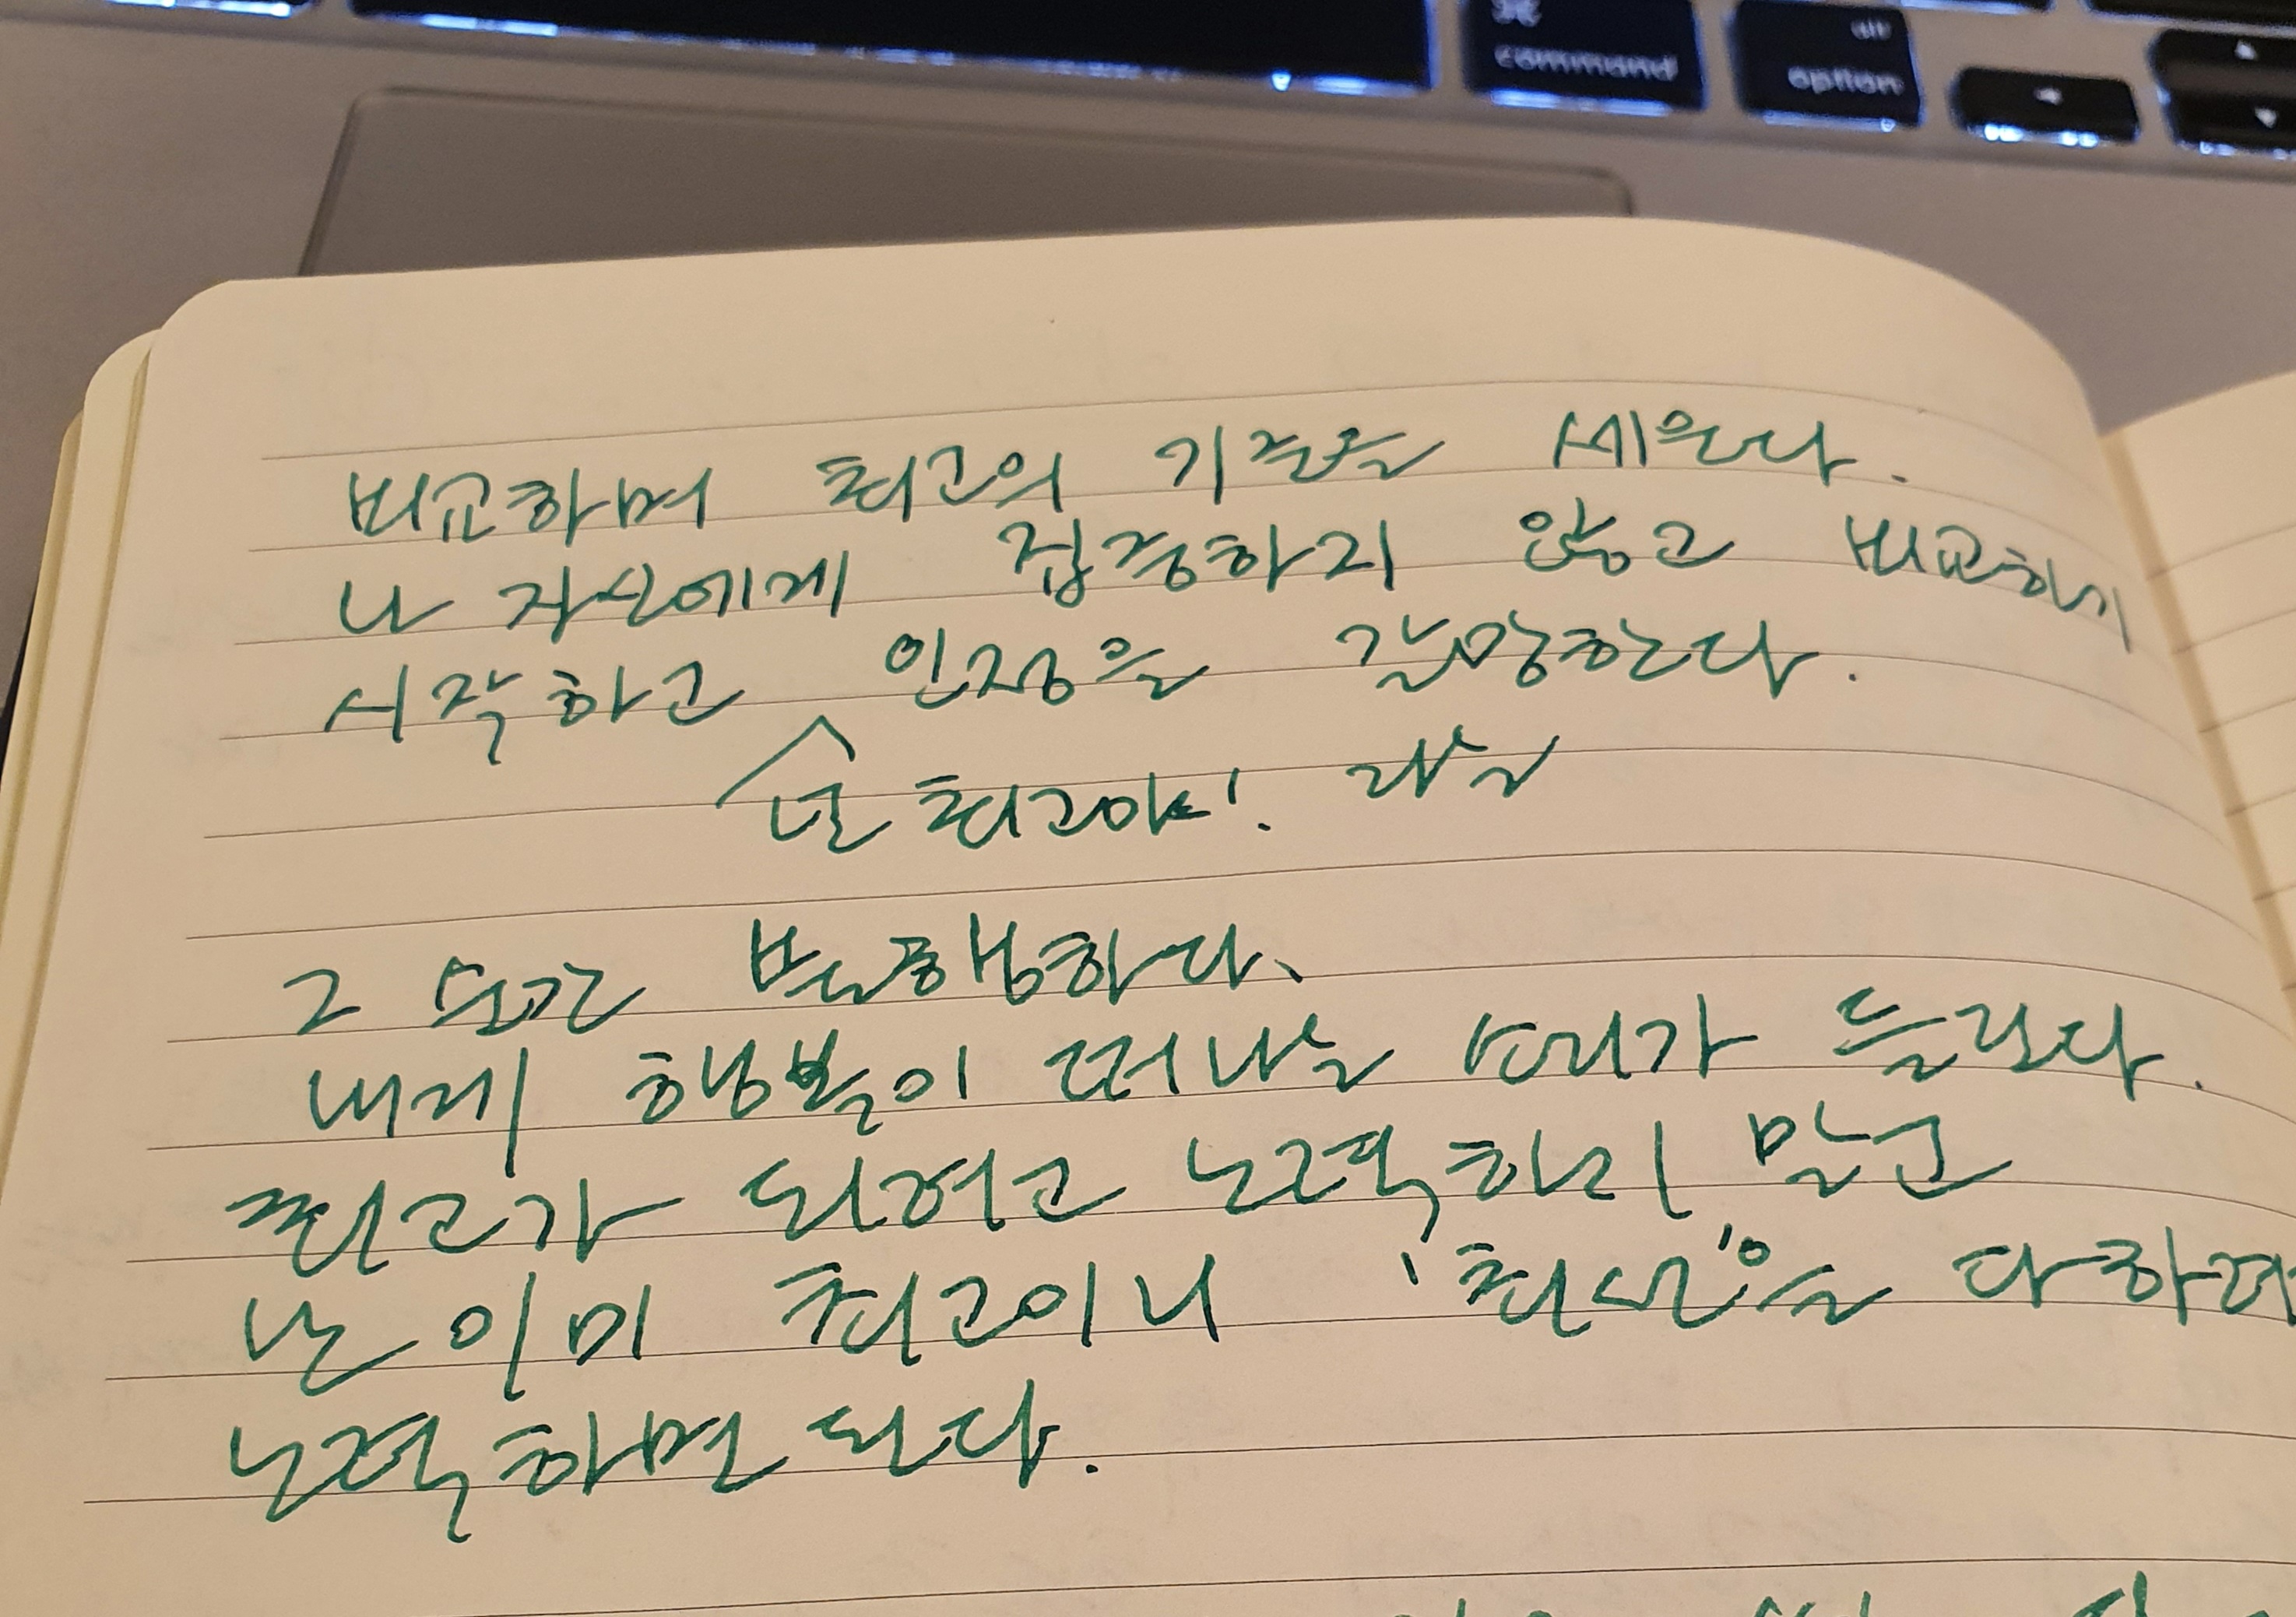 ⌘
command
alt
option
비교하며 최고의 기준을 세운다.
나 자신에게 집중하지 않고 비교하기
시작하고 인정을 갈망한다.
넌 최고야! 라는
그 순간 불행하다.
내게 행복이 떠나는 소리가 들린다.
최고가 되려고 노력하지 말고
난 이미 최고이니 '최선'을 다하며
노력하면 된다.